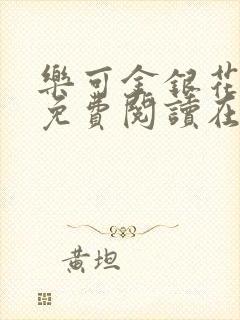 樂可金銀花
免費閱讀在
黃坦